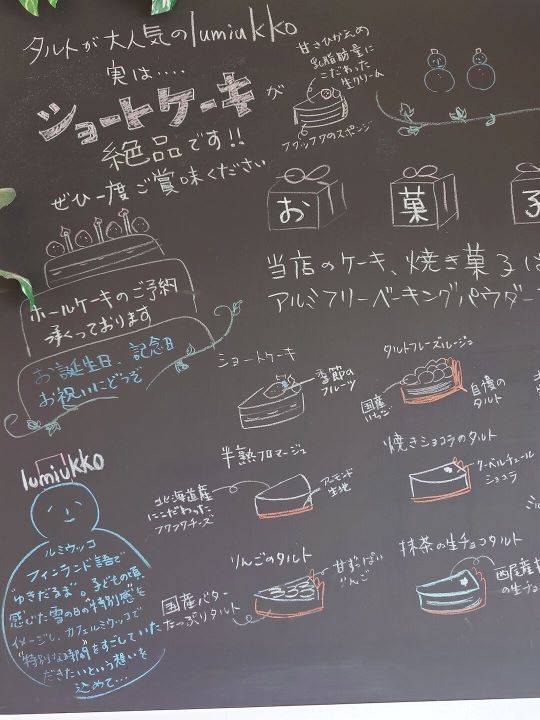 タルトが大人気のlumiukko
実は....
ショートケーキが
絶品です!!
ぜひ一度ご賞味ください
甘さひかえめ
乳脂肪量に
こだわった
生クリーム
フワッフワのスポンジ
お菓子
当店のケーキ、焼き菓子は
アルミフリーベーキングパウダー
ホールケーキのご予約
承くっております
お誕生日、記念日
お祝いにどうぞ
ショートケーキ
季節の
フルーツ
タルトフレーズルージュ
国産
いちご
自慢の
タルト
半熟フロマージュ
北海道産
にこだわった
フワンクチーズ
アーモンド
生地
焼きショコラのタルト
クーベルチュール
ショコラ
りんごのタルト
甘ずっぱい
りんご
国産バター
たっぷりタルト
抹茶の生チョコタルト
西尾産
の生チョ
lumiukko
ルミウッコ
フィンランド語で
"ゆきだるま"。子どもの頃
感じた雪の日の"特別感"を
イメージし、カフェルミウッコで
"特別な時間"をすごしていた
だきたいという想いを
込めて...